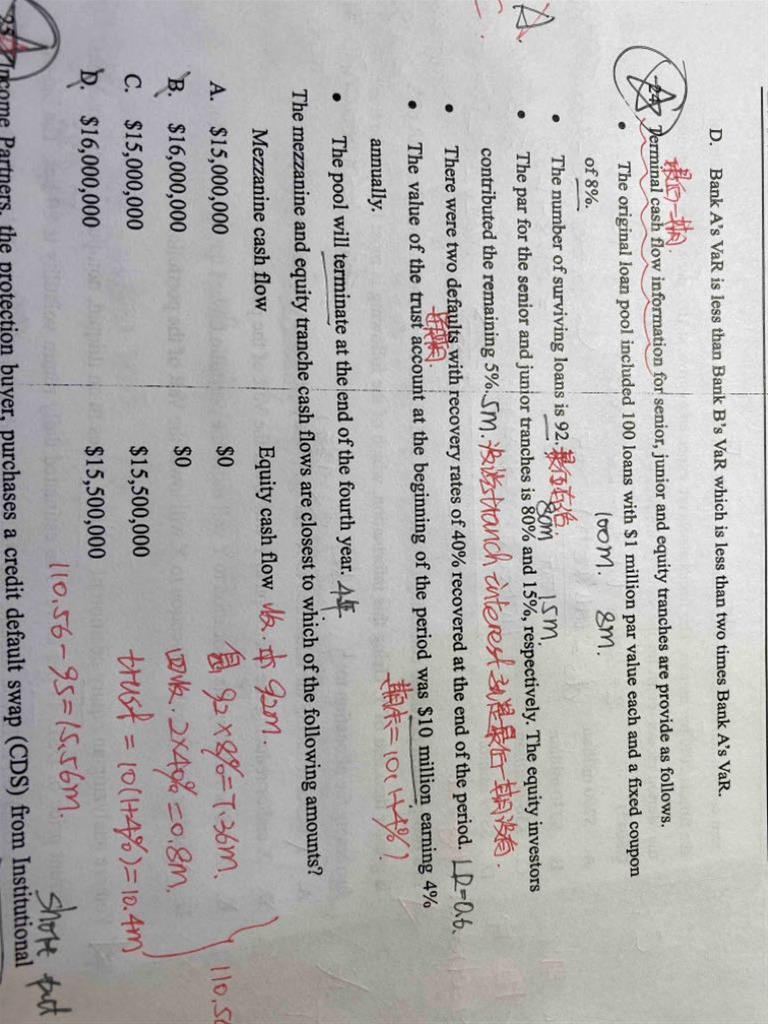 D. Bank A's VaR is less than Bank B's VaR which is less than two times Bank A's VaR.
24. Terminal cash flow information for senior, junior and equity tranches are provide as follows.
最后一期.
• The original loan pool included 100 loans with $1 million par value each and a fixed coupon
of 8%.
100m. 8m.
• The number of surviving loans is 92.
80m 15m.
• The par for the senior and junior tranches is 80% and 15%, respectively. The equity investors
contributed the remaining 5%. 5m. tranch interest
• There were two defaults with recovery rates of 40% recovered at the end of the period. LR=0.6.
• The value of the trust account at the beginning of the period was $10 million earning 4%
annually.
期末=10(1+4%)
• The pool will terminate at the end of the fourth year. 4年
The mezzanine and equity tranche cash flows are closest to which of the following amounts?
Mezzanine cash flow Equity cash flow
92m.
A. $15,000,000 $0
92×8%=7.36m.
B. $16,000,000 $0
回收. 2×40%=0.8m.
C. $15,000,000 $15,500,000
trust=10(1+4%)=10.4m
D. $16,000,000 $15,500,000
110.56-95=15.56m.
short put
25. Income Partners, the protection buyer, purchases a credit default swap (CDS) from Institutional